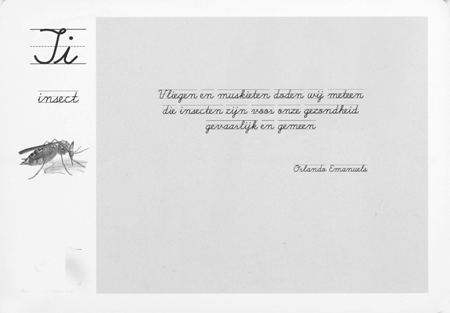 Ii
insect
Vliegen en muskieten doden wij meteen
die insecten zijn voor onze gezondheid
gevaarlijk en gemeen
Orlando Emanuels